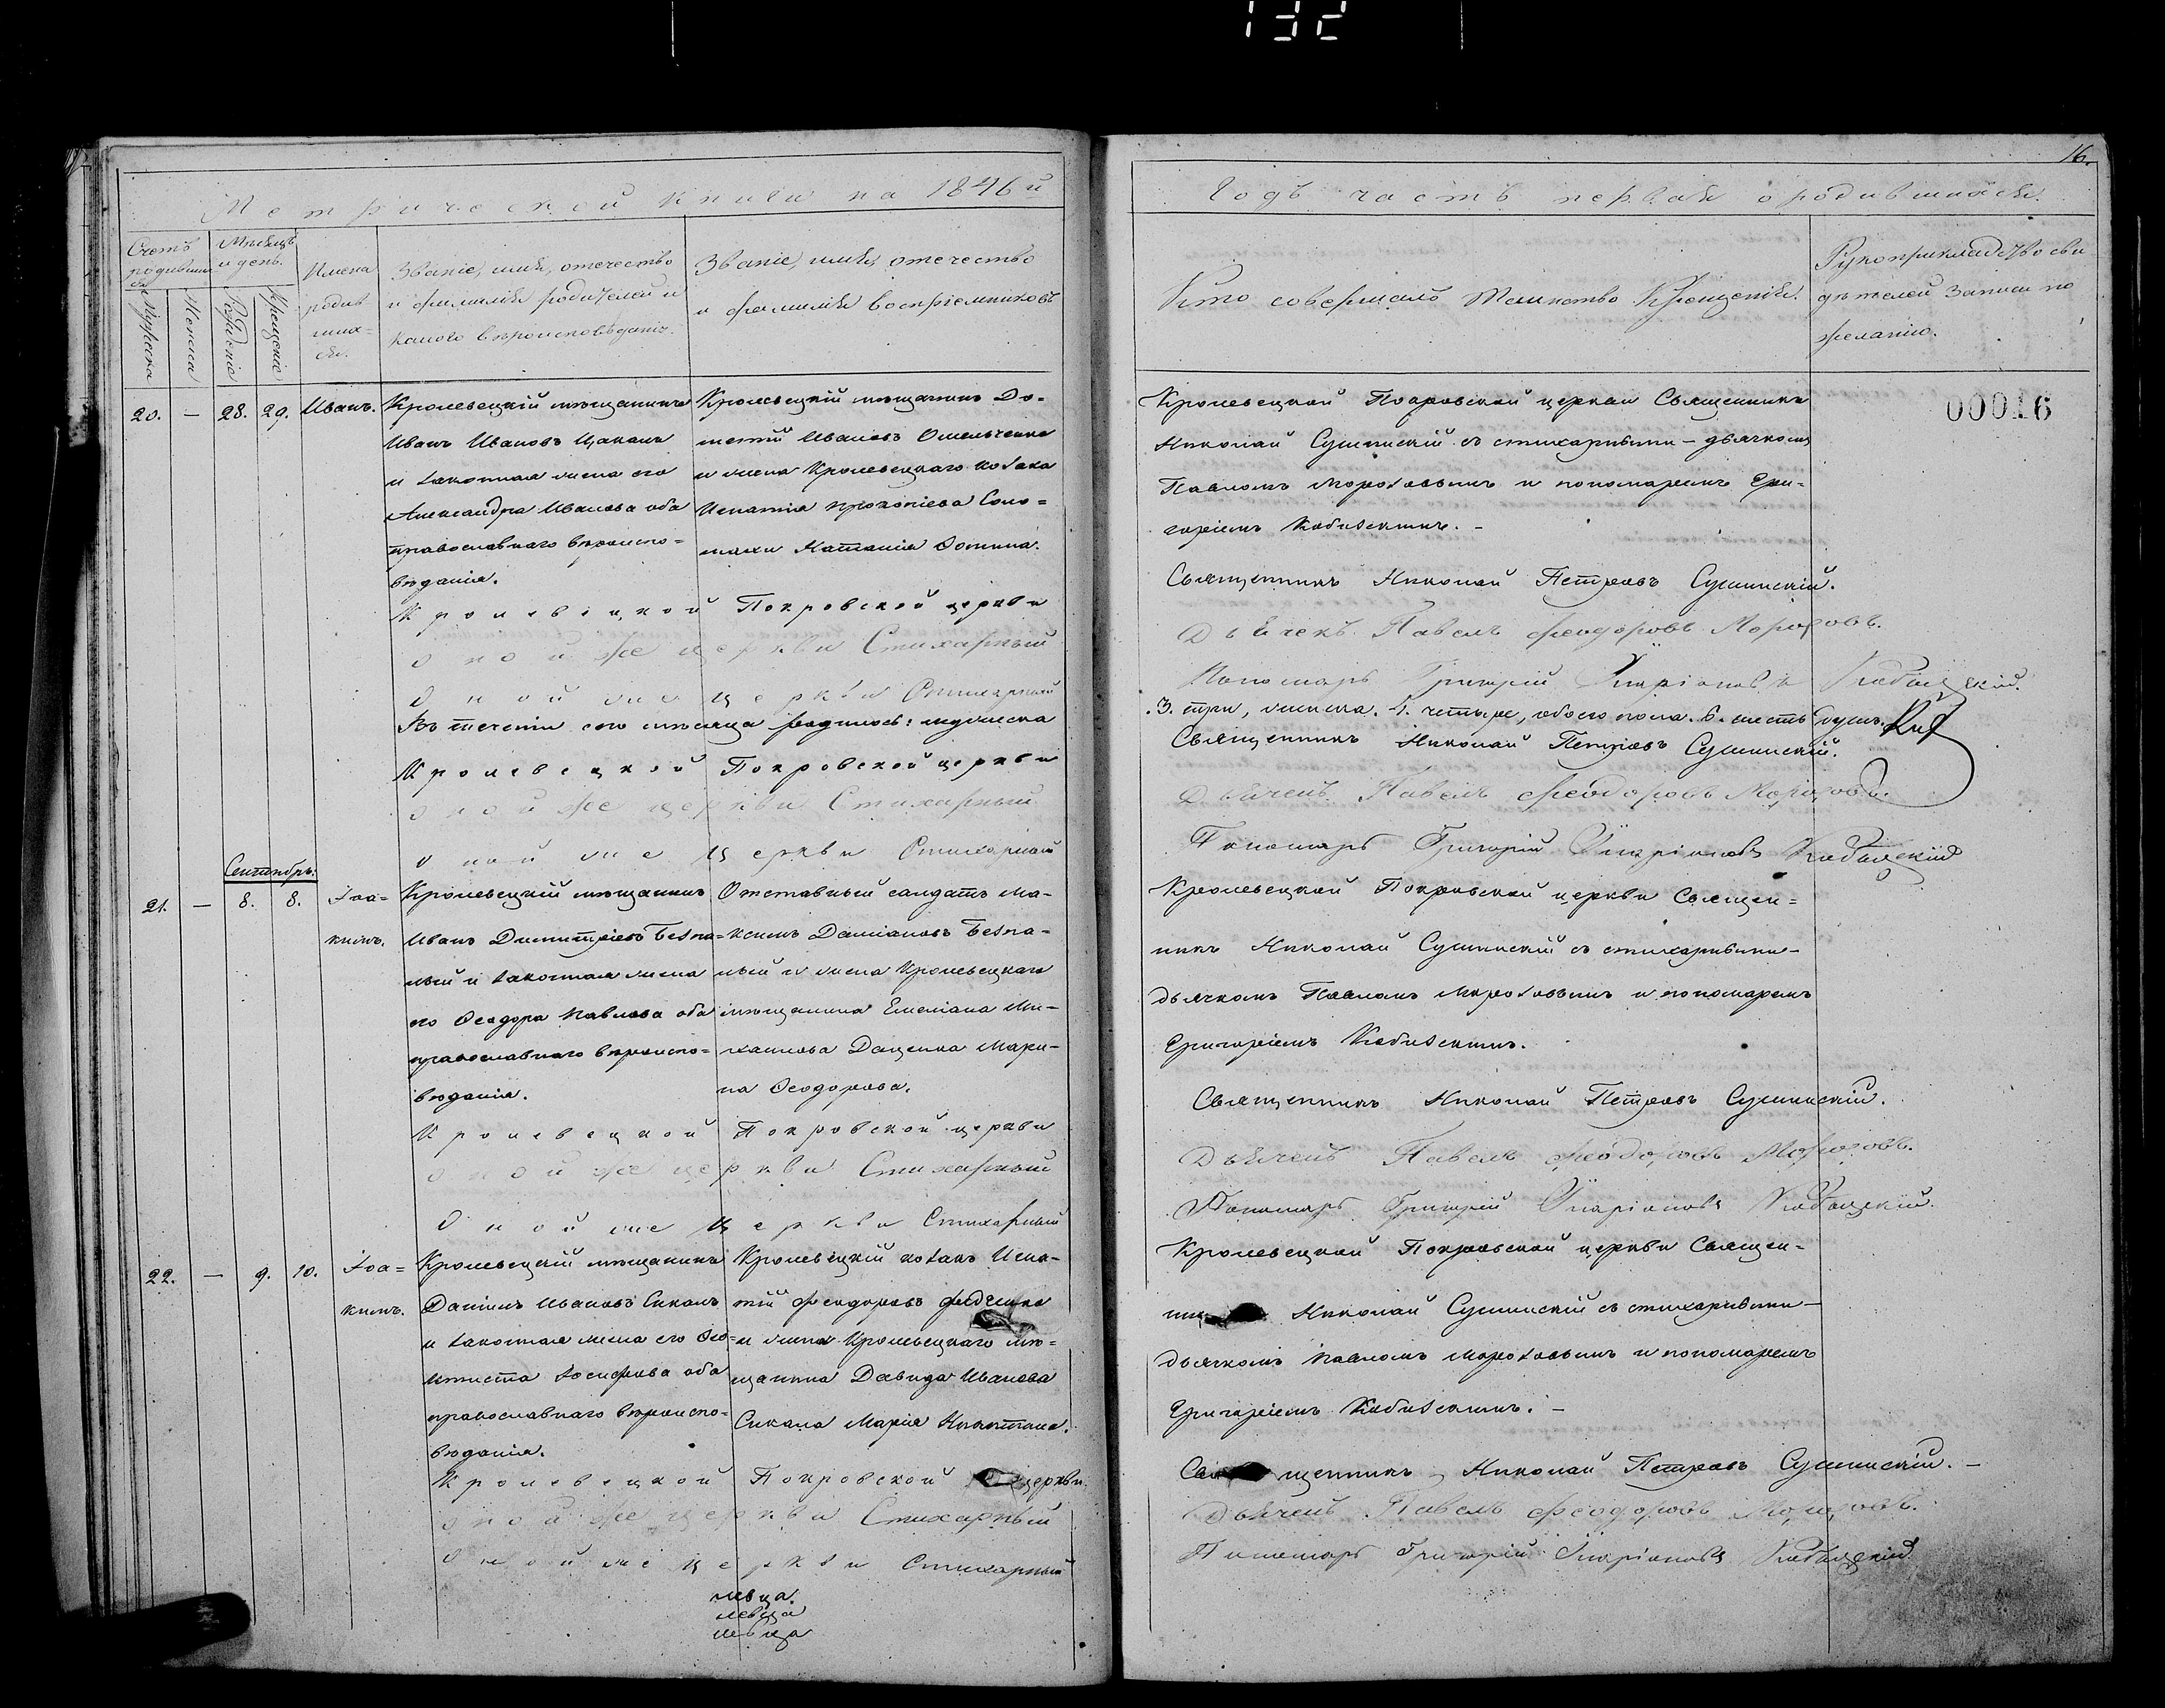 132
16.
Метрической книги на 1846й
Годъ часть первая о родившихся.
Счетъ родившихся
Мѣсяцъ и день.
Мужеска
Женска
Рожденіе
Крещеніе
Имена родившихся.
Званіе, имя, отечество
и фамилія родителей и
какого вѣроисповѣданія.
Званіе, имя, отечество
и фамилія воспріемниковъ
Кто совершалъ Таинство Крещенія.
Рукоприкладство сви
дѣтелей записи по
желанію.
00016
20. — 28. 29. Иванъ.
Кролевецкій мѣщанинъ
Иванъ Ивановъ Цаканъ
и законная жена его
Александра Иванова оба
православнаго вѣроиспо=
вѣданія.
Кролевецкій мѣщанинъ До=
метій Ивановъ Омельченко
и жена Кролевецкаго козака
Игнатія Прокопіева Соло=
махи Наталія Фомина.
Кролевецкой Покровской церкви Священникъ
Николай Сушинскій съ стихарными – дьячкомъ
Павломъ Морозовымъ и пономаремъ Гри=
горіемъ Кобизскимъ. –
Кролевецкой Покровской церкви
Священникъ Николай Петровъ Сушинскій.
Оной же церкви Стихарный
Дьячекъ Павелъ Феодоровъ Морозовъ.
Оной же церкви Стихарный
Пономарь Григорій Иларіоновъ Кобызскій.
Въ теченіи сего мѣсяца родилось: мужеска
.3. три, женска. 4. четыре, обоего пола. 6. шесть душъ.
Кролевецкой Покровской церкви
Священникъ Николай Петровъ Сушинскій.
Оной же церкви Стихарный
Дьячекъ Павелъ Феодоровъ Морозовъ.
Оной же церкви Стихарный
Пономарь Григорій Иларіоновъ Кобызскій
Сентябрь:
21. — 8. 8. Іоа=
кимъ.
Кролевецкій мѣщанинъ
Иванъ Димитріевъ Безпа=
лый и законная жена
его Феодора Павлова оба
православнаго вѣроиспо=
вѣданія.
Отставный салдатъ Ма-
ксимъ Даміановъ Безпа=
лый и жена Кролевецкаго
мѣщанина Емеліана Ми-
хаилова Даценка Мари-
на Феодорова.
Кролевецкой Покровской церкви Священ=
никъ Николай Сушинскій съ стихарными –
дьячкомъ Павломъ Морозовымъ и пономаремъ
Григоріемъ Кобизскимъ.
Кролевецкой Покровской церкви
Священникъ Николай Петровъ Сушинскій.
Оной же церкви Стихарный
Дьячекъ Павелъ Феодоровъ Морозовъ.
Оной же церкви Стихарный
Пономарь Григорій Иларіоновъ Кобызскій.
22. — 9. 10. Іоа=
кимъ.
Кролевецкій мѣщанинъ
Даніилъ Ивановъ Сикалъ
и законная жена его Фео=
ктиста Іосифова оба
православнаго вѣроиспо=
вѣданія.
Кролевецкій козакъ Игна-
тій Феодоровъ Федченко
и жена Кролевецкаго мѣ=
щанина Давида Иванова
Сикала Марія
Кролевецкой Покровской церкви Священ=
Николай Сушинскій съ стихарными –
дьячкомъ Павломъ Морозовымъ и пономаремъ
Григоріемъ Кобизскимъ. –
Кролевецкой Покровской церкви
Священникъ Николай Петровъ Сушинскій. –
Оной же церкви Стихарный
Дьячекъ Павелъ Феодоровъ Морозовъ.
Оной же церкви Стихарный
Пономарь Григорій Иларіоновъ Кобызскій
левца.
левца
левца